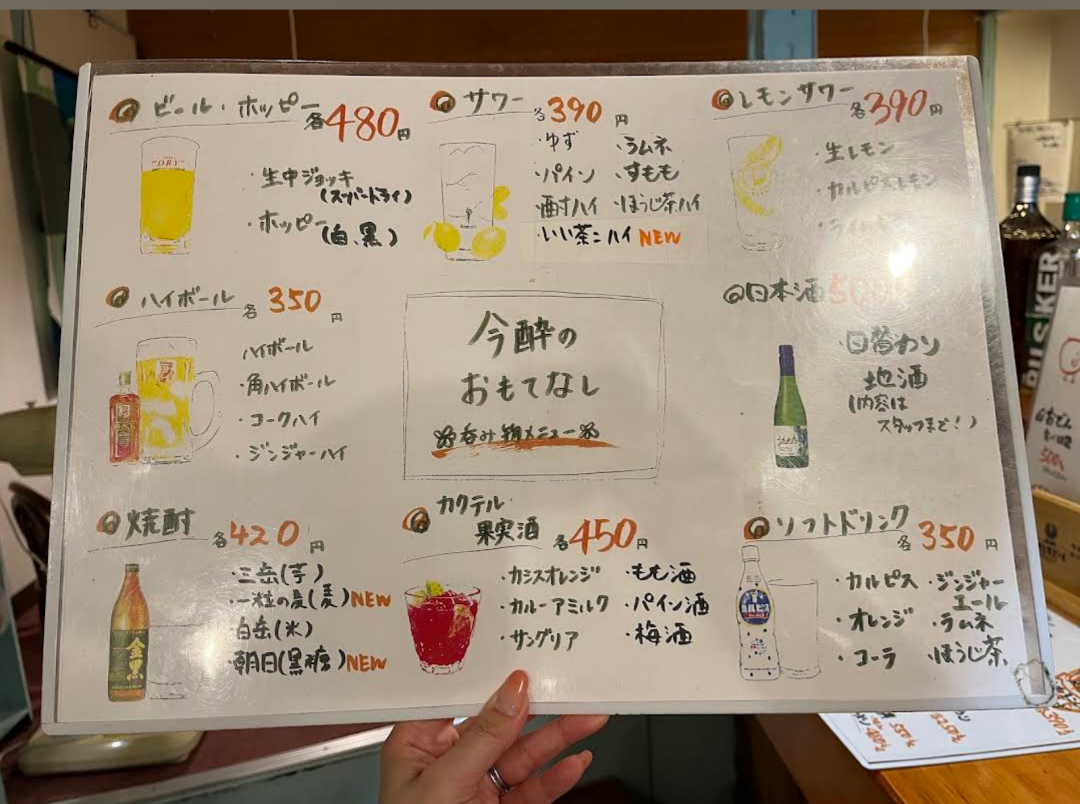 ビール・ホッピー 各480円
・生中ジョッキ
(スーパードライ)
・ホッピー(白、黒)
DRY
サワー 各390円
・ゆず ・ラムネ
・パイン ・すもも
・酎ハイ ・ほうじ茶ハイ
・いい茶ニハイ NEW
レモンサワー 各390円
・生レモン
・カルピスレモン
ハイボール 各350円
ハイボール
・角ハイボール
・コークハイ
・ジンジャーハイ
今酔の
おもてなし
呑み物メニュー
◎日本酒 500
・日替わり
地酒
(内容は
スタッフまで!)
焼酎 各420円
・三岳(芋)
・一粒の麦(麦)NEW
・白岳(米)
・朝日(黒糖)NEW
金黒
カクテル
果実酒 各450円
・カシスオレンジ ・もも酒
・カルーアミルク ・パイン酒
・サングリア ・梅酒
ソフトドリンク 各350円
・カルピス ・ジンジャー
エール
・オレンジ ・ラムネ
・コーラ ・ほうじ茶
カルピス